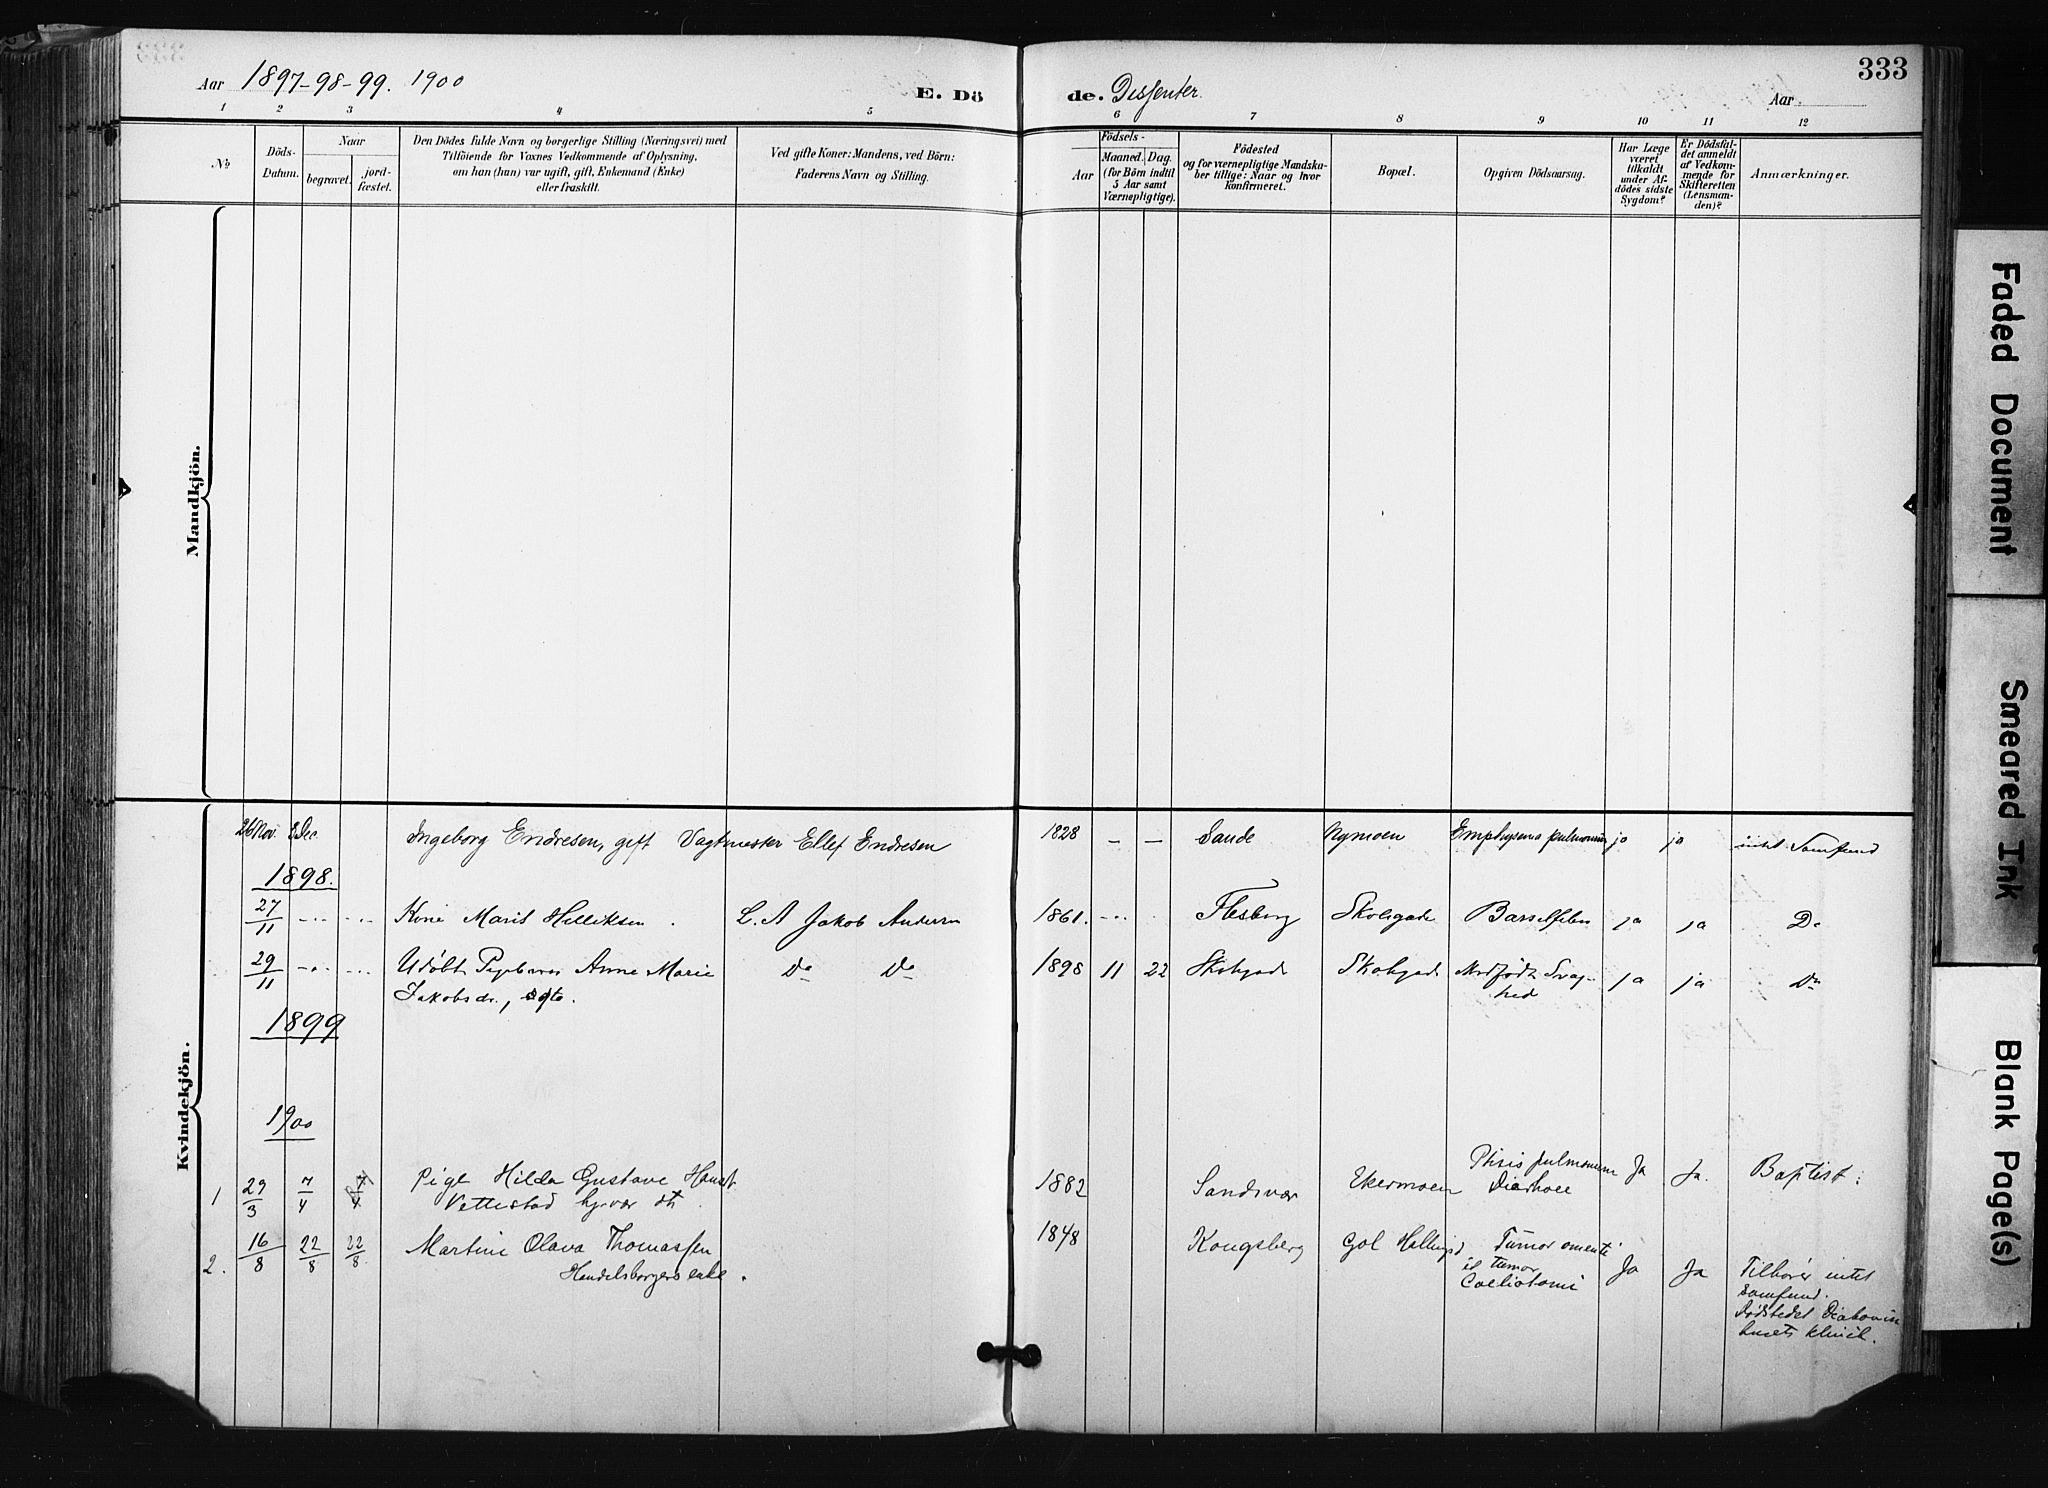 333
Aar 1897-98-99. 1900
E. Döde. Dissenter.
Aar
1 2 3 4 5 6 7 8 9 10 11 12
No
Döds-
Datum.
Naar
begravet.
jord-
fæstet.
Den Dödes fulde Navn og borgerlige Stilling (Næringsvei) med
Tilföiende for Voxnes Vedkommende af Oplysning,
om han (hun) var ugift, gift, Enkemand (Enke)
eller fraskilt.
Ved gifte Koner: Mandens, ved Börn:
Faderens Navn og Stilling.
Födsels-
Aar
Maaned. Dag.
(for Börn indtil
5 Aar samt
Værnepligtige).
Födested
og for værnepligtige Mandska-
ber tillige: Naar og hvor
konfirmeret.
Bopæl.
Opgiven Dödsaarsag.
Har Læge
været
tilkaldt
under Af-
dödes sidste
Sygdom?
Er Dödsfal-
det anmeldt
af Vedkom-
mende for
Skifteretten
(Lensman-
den)?
Anmærkninger.
Mandkjön.
Kvindekjön.
26 Nov. Dec. Ingeborg Endresen, gift Vagtmester Ellef Endresen 1828 — — Sande Nymoen Emphysema pulmonum ja ja intet Samfund
1898.
27/11 Kone Marit L. A Jakob 1861. Flesberg Skolegade Barselfeber ja ja Do
29/11 Udøbt Anne Marie Do Do 1898 11 22 Skolegade Skolegade Medfødt Svag-
Jakobsdr., ægte. hed ja ja Do
1899
1900
1 29/3 7/4 7/4 Pige Hilda Gustave 1882 Sandsvær Phisis pulmonum Ja Ja. Baptist.
Vettestad Diarhoee
2. 16/8 22/8 22/8 Martine Olava Thomassen 1848 Kongsberg Gol Tumor
Handelsborgers enke. tumor
Ja Ja Tilhører intet
samfund.
Dødstedet
husets klinik.
Faded Document
Smeared Ink
Blank Page(s)